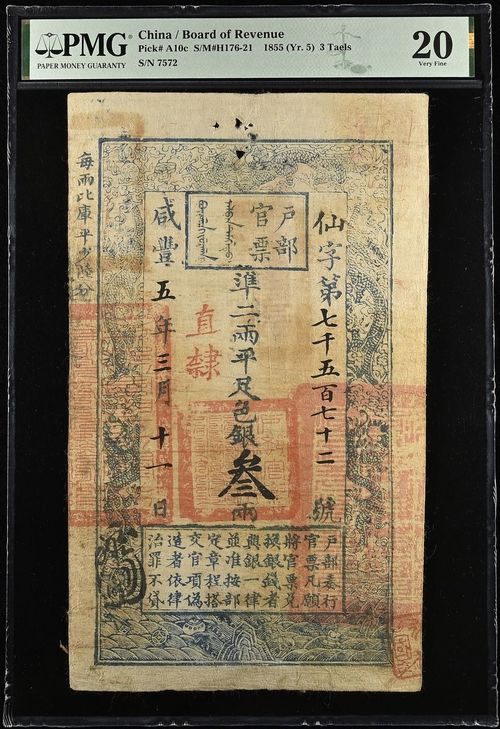 PMG
PAPER MONEY GUARANTY
China / Board of Revenue
Pick# A10c S/M#H176-21 1855 (Yr. 5) 3 Taels
S/N 7572
20
Very Fine
戶部
官票
仙字第七千五百七十二號
準二兩平足色銀叁兩
直隸
咸豐五年三月十一日
每兩比庫平少陸分
戶部奏行
官票凡願
將官票兌
換銀錢者
與銀一律
並准按部
定章程搭
交官項偽
造者依律
治罪不貸